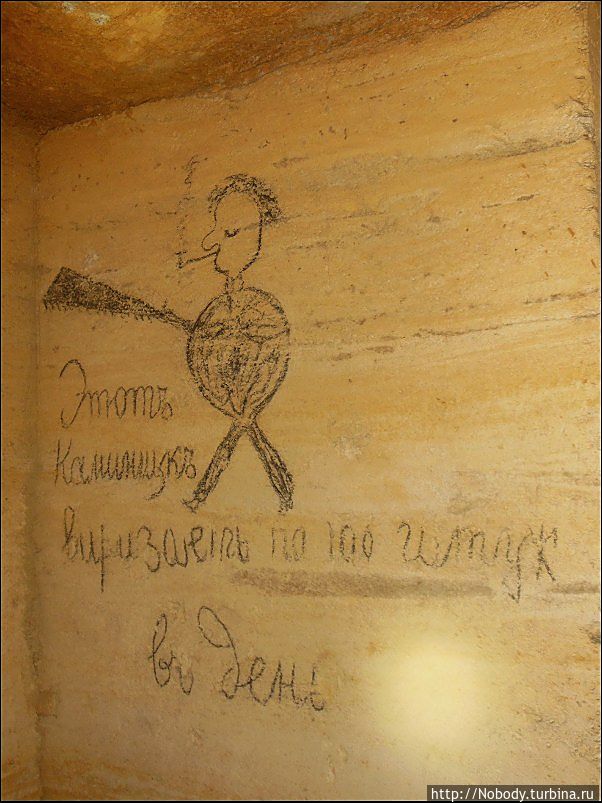 Этотъ
Каминщикъ
виризаеть по 100 штук
въ день
http://Nobody.turbina.ru